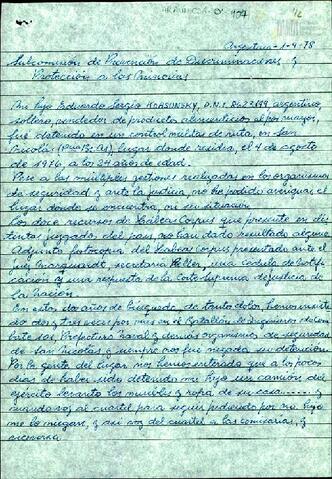 Argentina - 1-4-78
Subcomisión de Prevención de Discriminaciones y
Protección a las Minorías
Mi hijo Eduardo Sergio KORSUNSKY, D.N.I. argentino,
soltero, vendedor de productos alimenticios al por mayor,
fué detenido en un control militar de ruta, en San
Nicolás (Pcia Bs. As) lugar donde residía, el 4 de agosto
de 1976, a los 24 años de edad.
Pese a las múltiples gestiones realizadas en los organismos
de seguridad y ante la justicia, no he podido averiguar el
lugar donde se encuentra, ni su situación.
Los doce recursos de Habeas Corpus que presenté en dis-
tintos juzgados del país, no han dado resultado alguno.
Adjunto fotocopia del Habeas Corpus presentado ante el
juez Marquardt, secretaría una cédula de notifi-
cación y una respuesta de la Corte Suprema de Justicia de
la Nación.
En estos dos años de búsqueda, de tanto dolor, hemos insisti-
do dos y tres veces por mes en el Batallón de Ingenieros de Com-
bate 101, Prefectura Naval y demás organismos de seguridad
de San Nicolás y siempre nos fué negada su detención.
Por la gente del lugar nos hemos enterado que a los pocos
días de haber sido detenido mi hijo un camión del
ejército levantó los muebles y ropa de su casa
cuando voy al cuartel para seguir pidiendo por mi hijo
me lo niegan, y así voy del cuartel a las comisarías, y
viceversa.